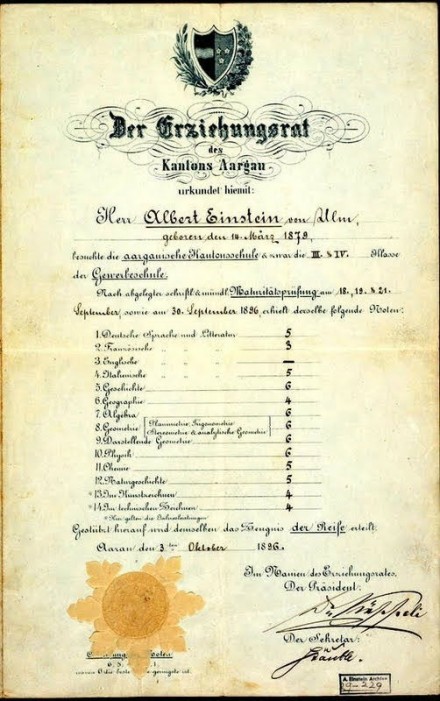 Der Erziehungsrat
des
Kantons Aargau
urkundet hiemit:
Herr Albert Einstein von Ulm,
geboren den 14. März 1879,
besuchte die aargauische Kantonsschule & zwar die III. & IV. Klasse
der Gewerbeschule.
Nach abgelegter schriftl. & mündl. Maturitätsprüfung am 18., 19. & 21.
September, sowie am 30. September 1896, erhielt derselbe folgende Noten:
1. Deutsche Sprache und Litteratur 5
2. Französische " " " 3
3. Englische " " " —
4. Italienische " " " 5
5. Geschichte 6
6. Geographie 4
7. Algebra 6
8. Geometrie Planimetrie, Trigonometrie Stereometrie & analytische Geometrie 6
9. Darstellende Geometrie 6
10. Physik 6
11. Chemie 5
12. Naturgeschichte 5
* 13. Im Kunstzeichnen 4
* 14. Im technischen Zeichnen 4
* Hier gelten die Jahresleistungen.
Gestützt hierauf wird demselben das Zeugnis der Reife erteilt.
Aarau den 3ten Oktober 1896.
Im Namen des Erziehungsrates,
Der Präsident:
Der Sekretär:
A. Einstein Archive